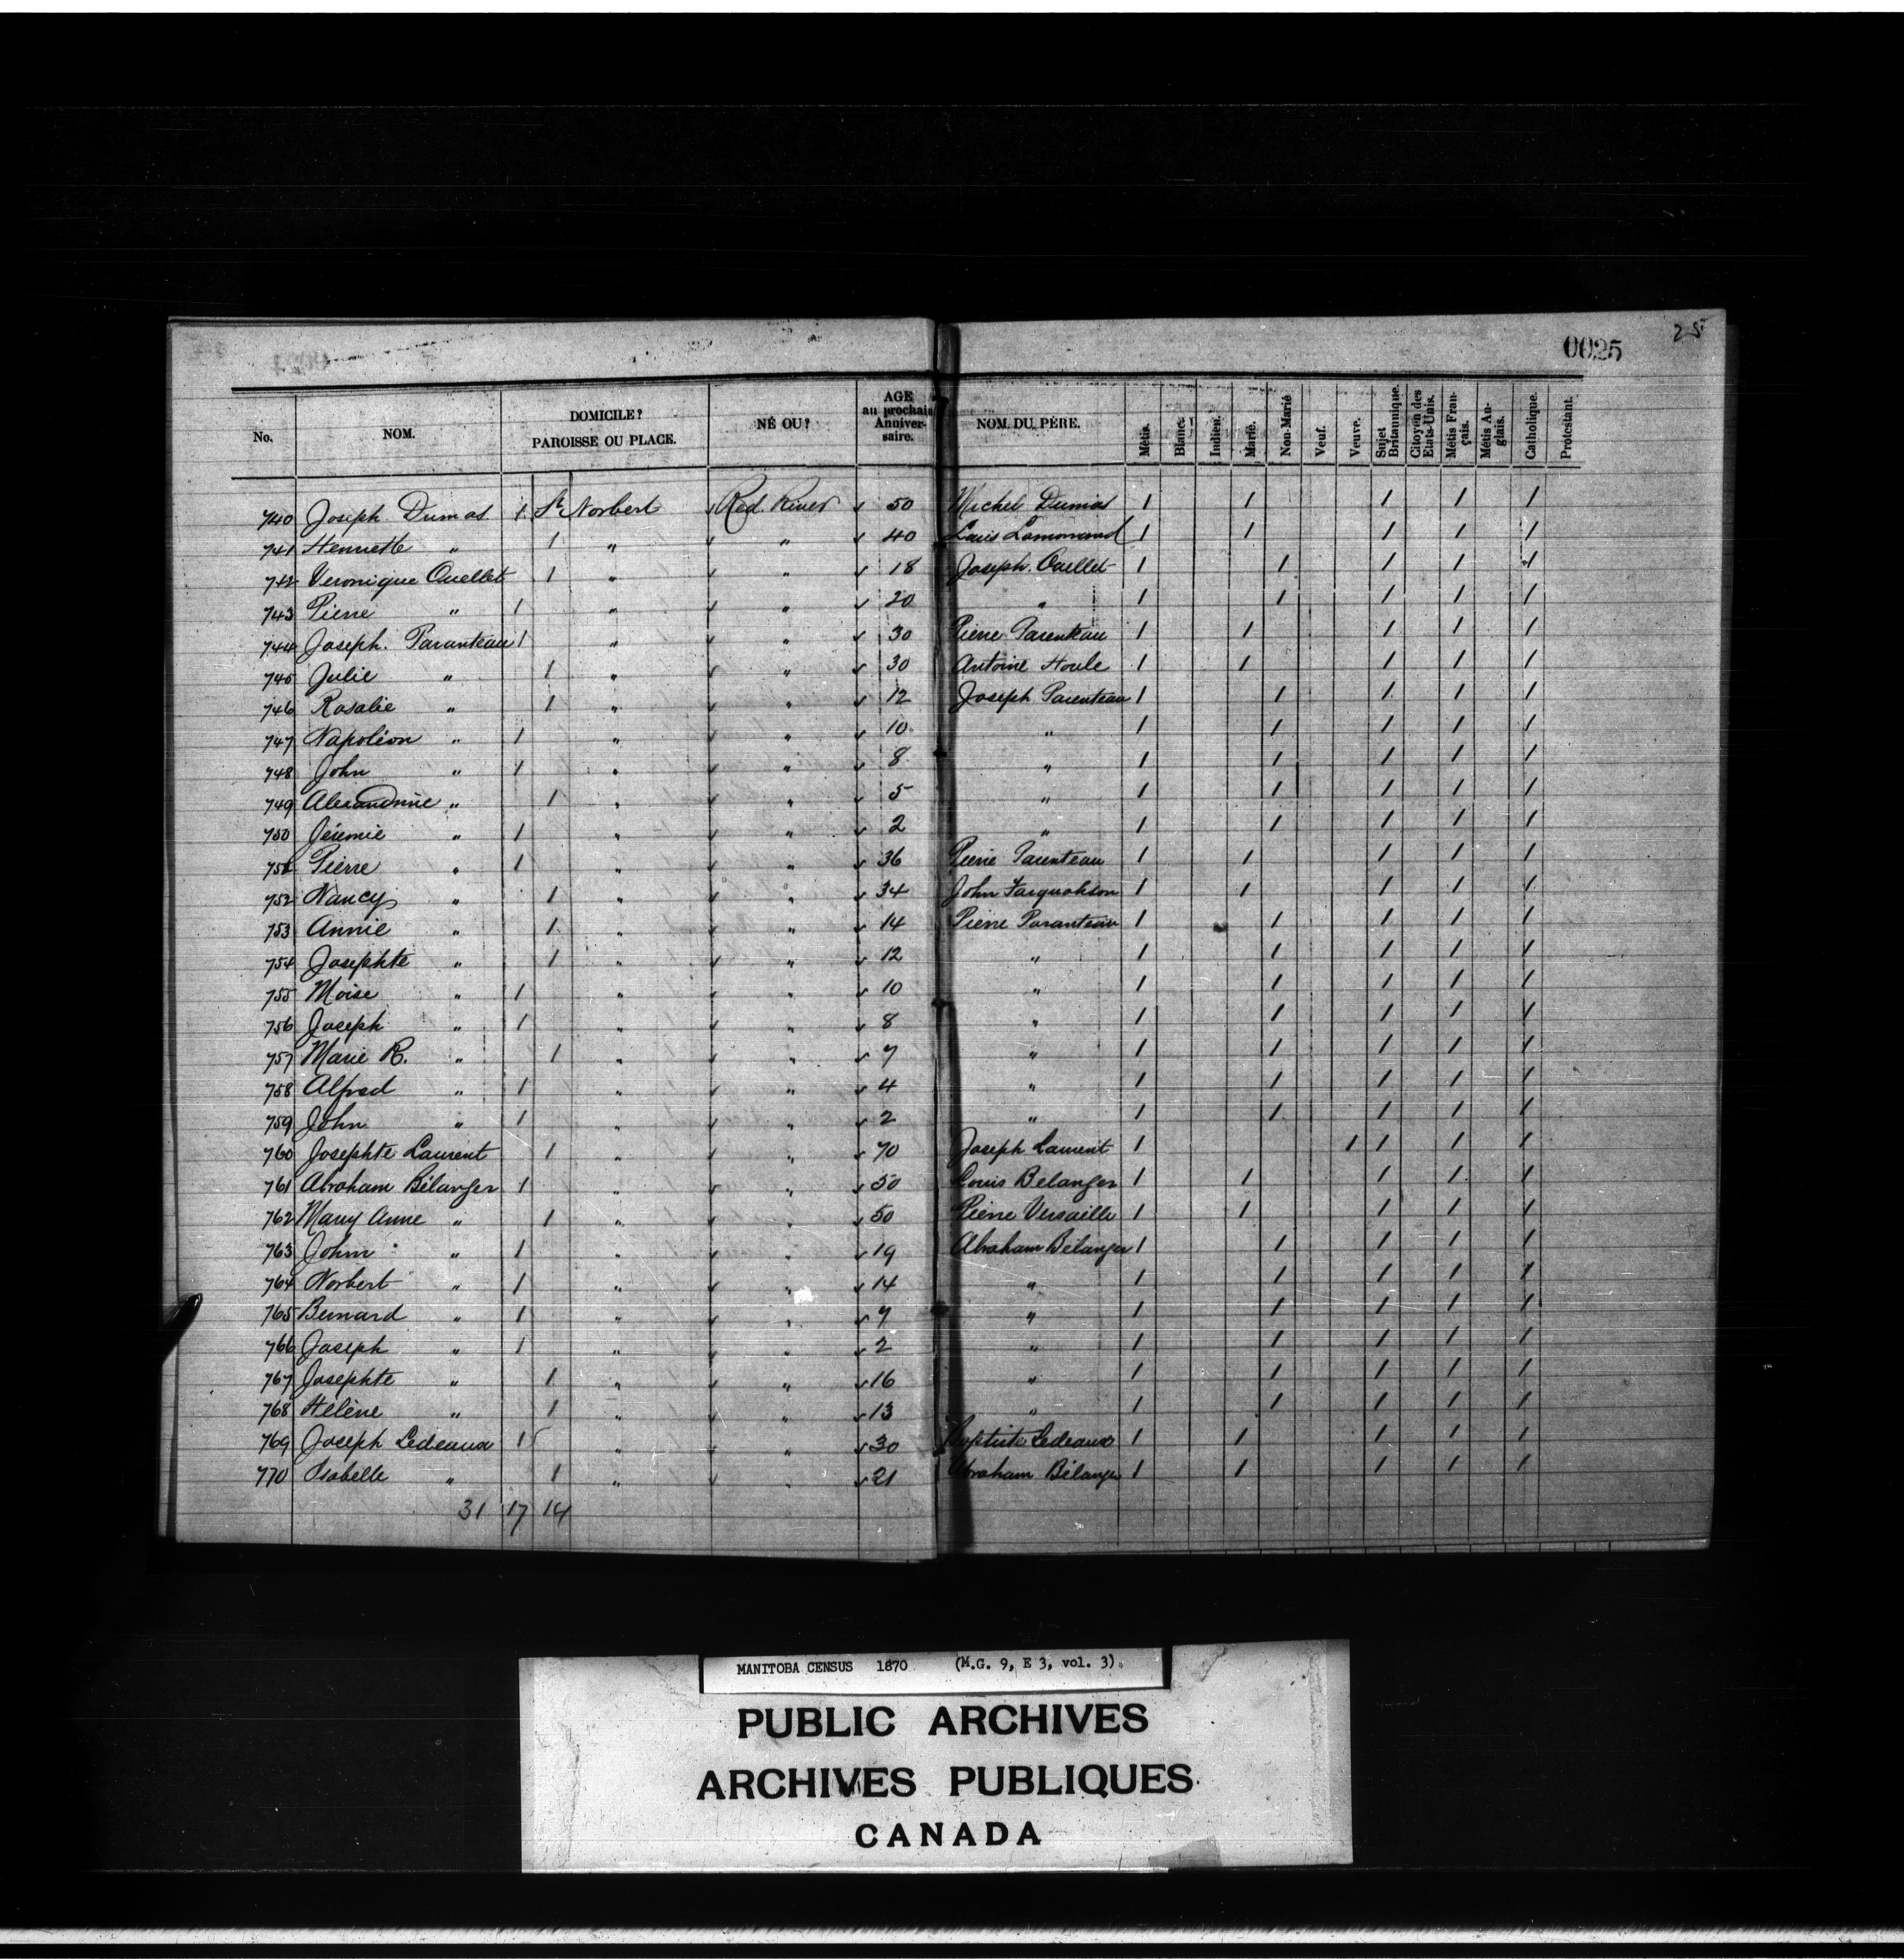 25
0025
No. NOM. DOMICILE? PAROISSE OU PLACE. NÉ OU? AGE au prochain Anniversaire. NOM DU PÈRE. Métis. Blanc. Indien. Marié. Non-Marié Veuf. Veuve. Sujet Britannique. Citoyen des Etats-Unis. Métis Français. Métis Anglais. Catholique. Protestant.
740 Joseph Dumas 1 St Norbert Red River 50 Michel Dumas 1 1 1 1 1
741 Henriette " 1 " " 40 Louis 1 1 1 1 1
742 Veronique Ouellet 1 " " 18 Joseph Ouellet 1 1 1 1 1
743 Pierre " 1 " " 20 " 1 1 1 1 1
744 Joseph. Paranteau 1 " " 30 Pierre Parenteau 1 1 1 1 1
745 Julie " 1 " " 30 Antoine Houle 1 1 1 1 1
746 Rosalie " 1 " " 12 Joseph Parenteau 1 1 1 1 1
747 Napoléon " 1 " " 10 " 1 1 1 1 1
748 John " 1 " " 8 " 1 1 1 1 1
749 Alexandrine " 1 " " 5 " 1 1 1 1 1
750 Jéremie " 1 " " 2 " 1 1 1 1 1
751 Pierre " 1 " " 36 Pierre Parenteau 1 1 1 1 1
752 Nancy " 1 " " 34 John Farquahson 1 1 1 1 1
753 Annie " 1 " " 14 Pierre Paranteau 1 1 1 1 1
754 Josephte " 1 " " 12 " 1 1 1 1 1
755 Moise " 1 " " 10 " 1 1 1 1 1
756 Joseph " 1 " " 8 " 1 1 1 1 1
757 Marie R. " 1 " " 7 " 1 1 1 1 1
758 Alfred " 1 " " 4 " 1 1 1 1 1
759 John " 1 " " 2 " 1 1 1 1 1
760 Josephte Laurent 1 " " 70 Joseph Laurent 1 1 1 1 1
761 Abraham Bélanger 1 " " 50 Louis Belanger 1 1 1 1 1
762 Mary Anne " 1 " " 50 Pierre Versaille 1 1 1 1 1
763 John " 1 " " 19 Abraham Bélanger 1 1 1 1 1
764 Norbert " 1 " " 14 " 1 1 1 1 1
765 Bernard " 1 " " 7 " 1 1 1 1 1
766 Joseph " 1 " " 2 " 1 1 1 1 1
767 Josephte " 1 " " 16 " 1 1 1 1 1
768 Hélène " 1 " " 13 " 1 1 1 1 1
769 Joseph Ledeaux 1 " " 30 Baptiste Ledeaux 1 1 1 1 1
770 Isabelle " 1 " " 21 Abraham Bélanger 1 1 1 1 1
31 17 14
MANITOBA CENSUS 1870 (M.G. 9, E 3, vol. 3).
PUBLIC ARCHIVES
ARCHIVES PUBLIQUES
CANADA